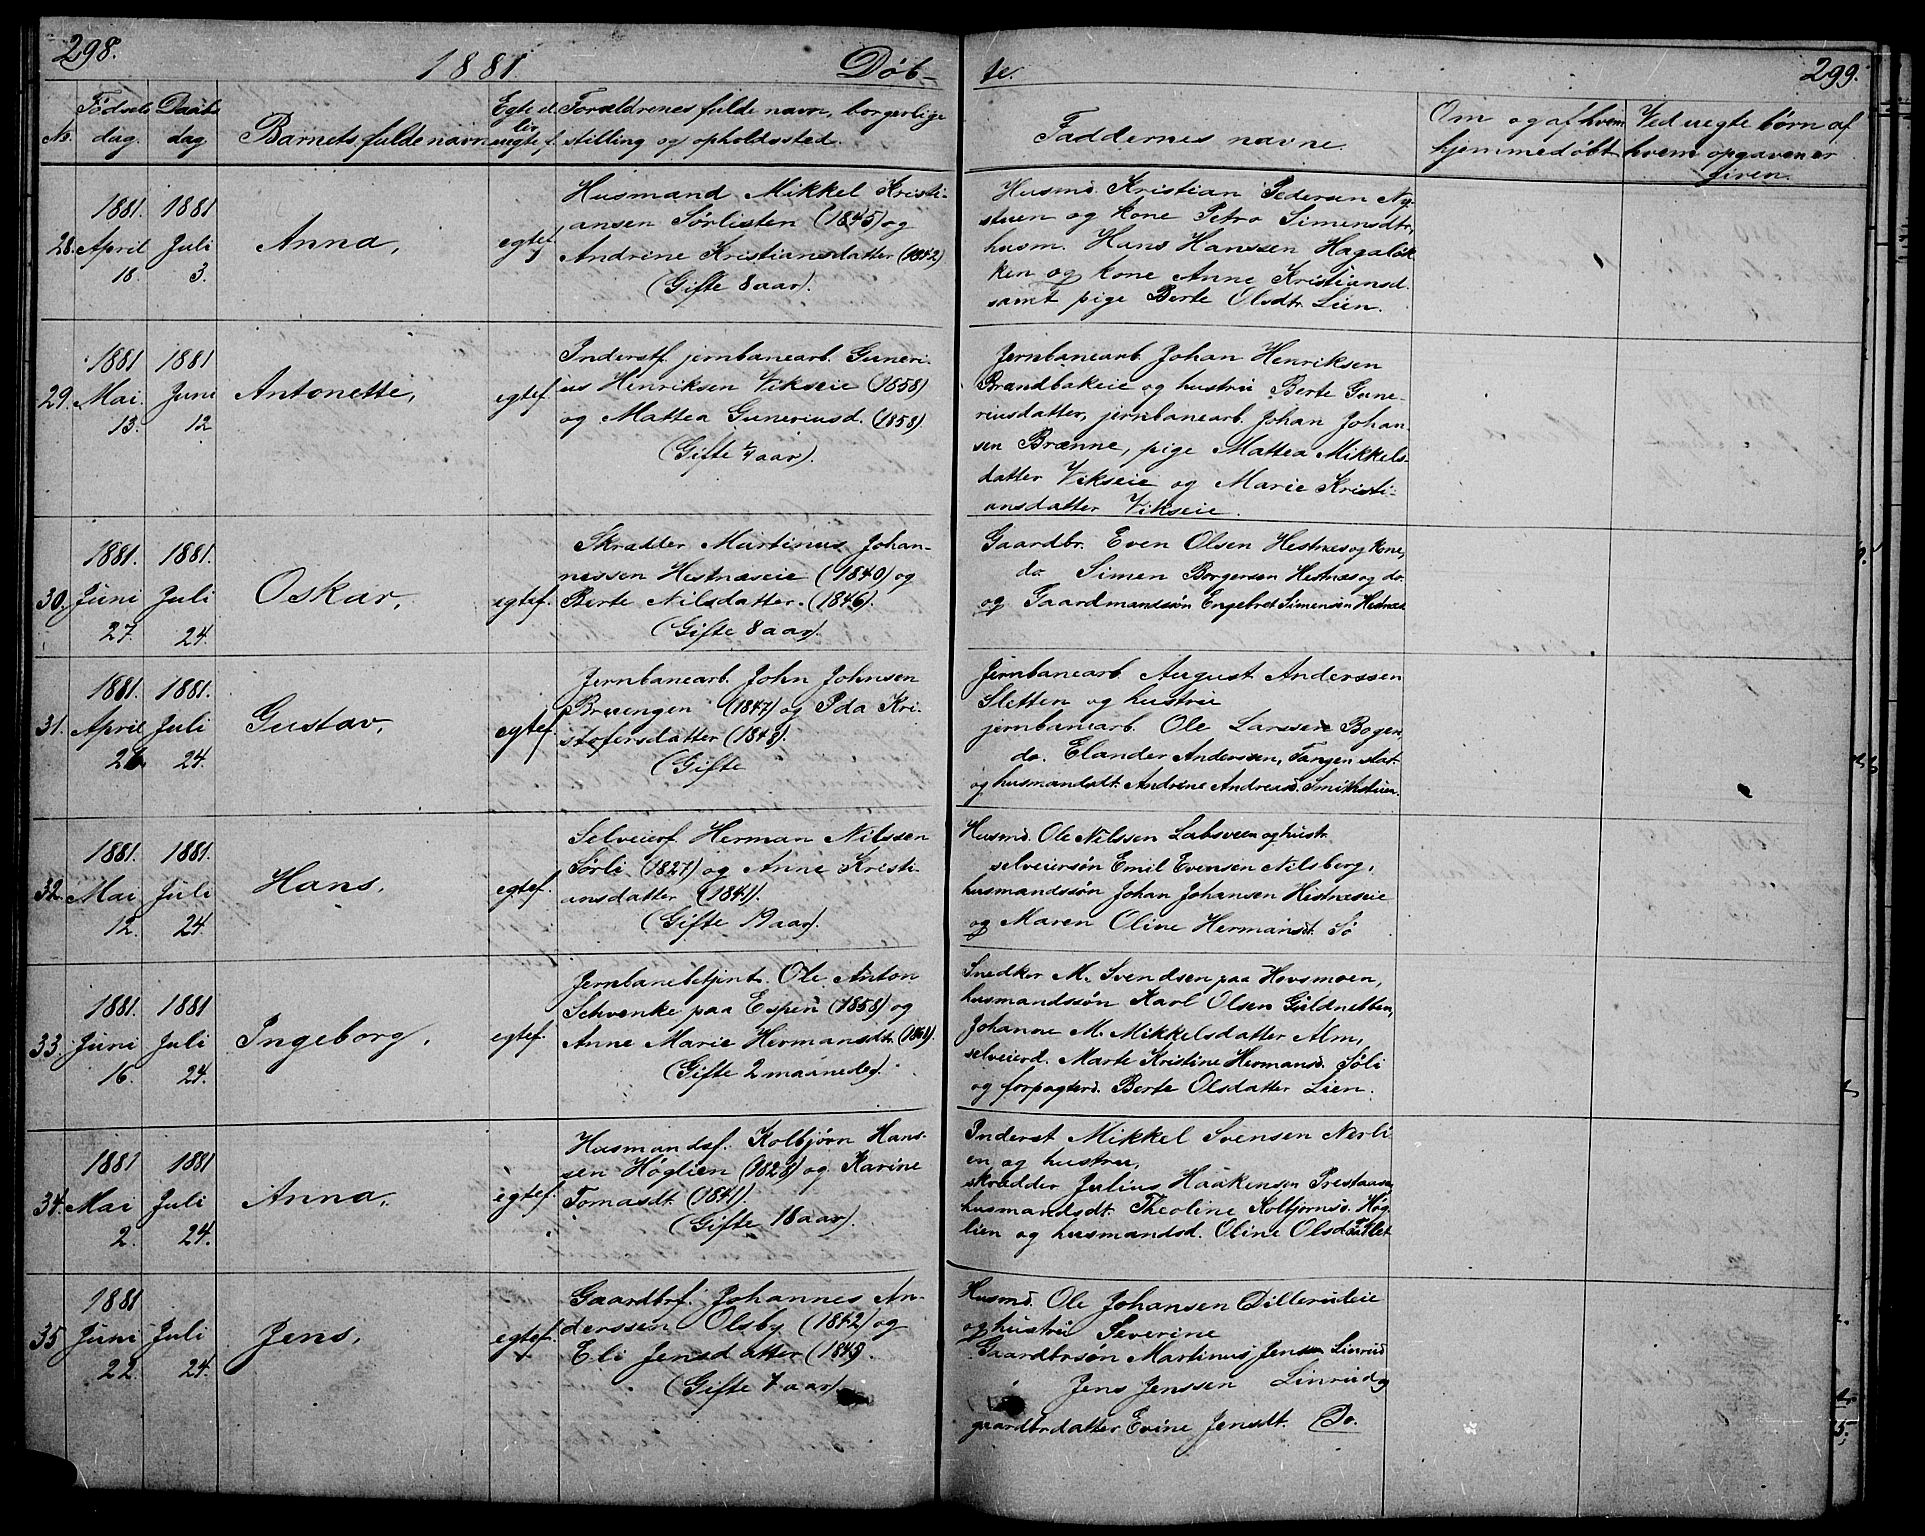 298.
1881.
Døb-
te.
299.
No.
Fødsels
dag.
Daabs
dag
Barnets fulde navn
Egte el.
uegte f.
Forældrenes fulde navn, borgerlige
stilling og opholdssted.
Faddernes navne.
Om og af hvem
hjemmedøbt
Ved uegte børn af
hvem opgaven er
given.
28.
1881.
April
18.
1881
Juli
3.
Anna,
egtef.
Husmand Mikkel Kristi-
ansen Sørlisten (1845) og
Andrine Kristiansdatter (1842)
(Gifte 8 aar).
Husmd. Kristian Pedersen Ny-
stuen og kone Petra Simensdtr,
husm. Hans Hanssen Hagaløk-
ken og kone Anne Kristiansd.
samt pige Berte Olsdtr. Lien.
29.
1881
Mai
13.
1881
Juni
12
Antonette,
egtef.
Inderstf. jernbanearb. Guneri-
us Henriksen Vikseie (1858)
og Mattea Guneriusd. (1858)
(Gifte ¼ aar).
Jernbanearb. Johan Henriksen
Brændbakeie og hustru Berte Gune-
riusdatter, jernbanearb. Johan Johan
sen Brænne, pige Mattea Mikkels-
datter Vikseie og Marie Kristi-
ansdatter Vikseie.
30.
1881.
Juni
27.
1881.
Juli
24.
Oskar,
egtef.
Skrædder Martinus Johan-
nessen Hestnæseie (1840) og
Berte Nilsdatter. (1846).
(Gifte 8 aar).
Gaardbr. Even Olsen Hestnæs og kone,
do. Simen Borgersen Hestnæs og do.
og Gaardmandssøn Engebret Simensen Hestnæs
31.
1881.
April
1881.
Juli
24.
Gustav,
egtef.
Jernbanearb. John Johnsen
Bruengen (1847) og Ida Kri-
stofersdatter (1848).
(Gifte
Jernbanearb. August Anderssen
Sletten og hustru
jernbanearb. Ole Larssen Bogen,
do. Elander Anderssen, Tangen stat.
og husmandsdt. Andrine Andreasd. Smithstuen.
32.
1881.
Mai
12.
1881.
Juli
24.
Hans,
egtef.
Selveierf. Herman Nilssen
Sørli (1827) og Anne Kristi-
ansdatter (1841).
(Gifte 19 aar).
Husmd. Ole Nilssen Labsveen og hustr.
selveiersøn Emil Evensen Nilsberg,
husmandssøn Johan Johansen Hestnæseie
og Maren Oline Hermansdt. Sø
33.
1881.
Juni
16.
1881
Juli
24.
Ingeborg,
egtef.
Jernbanebetjent. Ole Anton
Schvenke paa Espen (1858) og
Anne Marie Hermansdt.
(Gifte 2 maaneder).
Snedker M. Svendsen paa Hovsmoen,
husmandssøn Karl Olsen
Johanne M. Mikkelsdatter Alm,
selveierd. Marte Kristine Hermansd. Søli
og forpagterd. Berte Olsdatter Lien.
34.
1881
Mai
2.
1881
Juli
24.
Anna,
egtef.
Husmandsf. Kolbjørn Hans-
sen Høglien (1828) og Karine
Tomasdt. (1841).
(Gifte 18 aar).
Inderst Mikkel Svensen Nerli
en og hustru,
skrædder Julius Haakensen
husmandsdt. Theoline Kolbjørnsd. Høg
lien og husmandsd. Oline Olsd.
35
1881
Juni
22.
Juli
24.
Jens,
egtef.
Gaardbrf. Johannes An-
derssen Olsby (1842) og
Eli Jensdatter
(Gifte 7 aar).
Husmd. Ole Johansen Dillerudeie
og hustru Severine
Gaardbrsøn Martinus Jenssen Linrud
Jens Jenssen Linrud og
gaardbrdatter Evine Jensdt. Do.